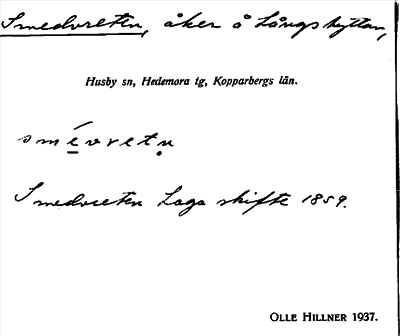 Smedvreten, åker å Långshyttan,
Husby sn, Hedemora tg, Kopparbergs län.
smé̱vretṇ
Smedvreten Laga skifte 1859.
OLLE HILLNER 1937.